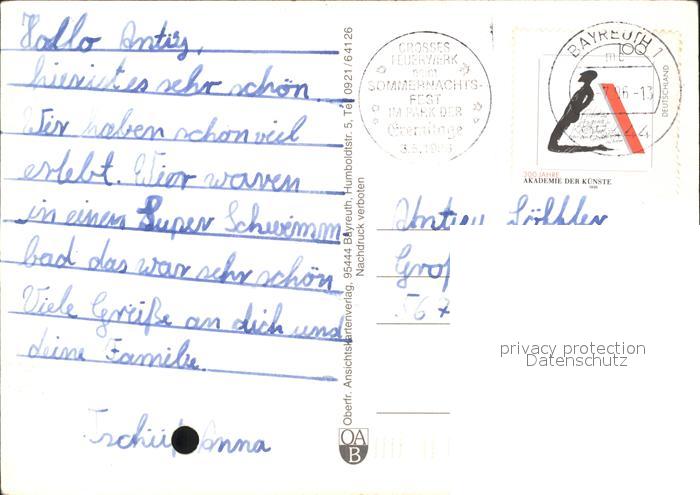 Hallo Antig,
hier ist es sehr schön.
Wir haben schon viel
erlebt. Wier waren
in einem Super Schwimm
bad das war sehr schön
Viele Grüße an dich und
deine Familie.
Tschüß Anna
Oberfr. Ansichtskartenverlag, 95444 Bayreuth, Humboldtstr. 5, Tel. 0921/64126
Nachdruck verboten
OA
B
GROSSES
FEUERWERK
beim
SOMMERNACHTS-
FEST
IM PARK DER
Eremitage
BAYREUTH 1
100
DEUTSCHLAND
300 JAHRE
AKADEMIE DER KÜNSTE
1996
Groß
567
privacy protection
Datenschutz